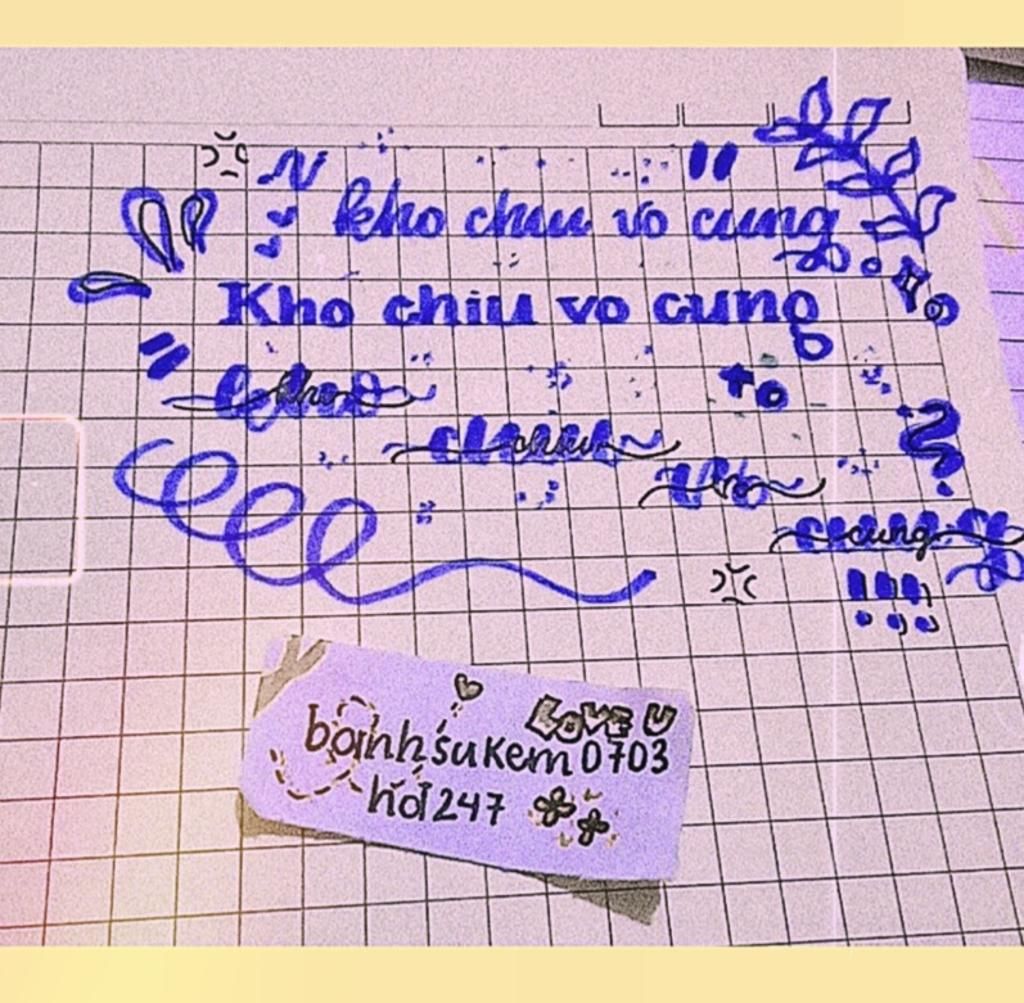 kho chiu vo cung
Kho chiu vo cung
kho
chiu
vo
cung
LOVE U
banhsukem0703
hd247